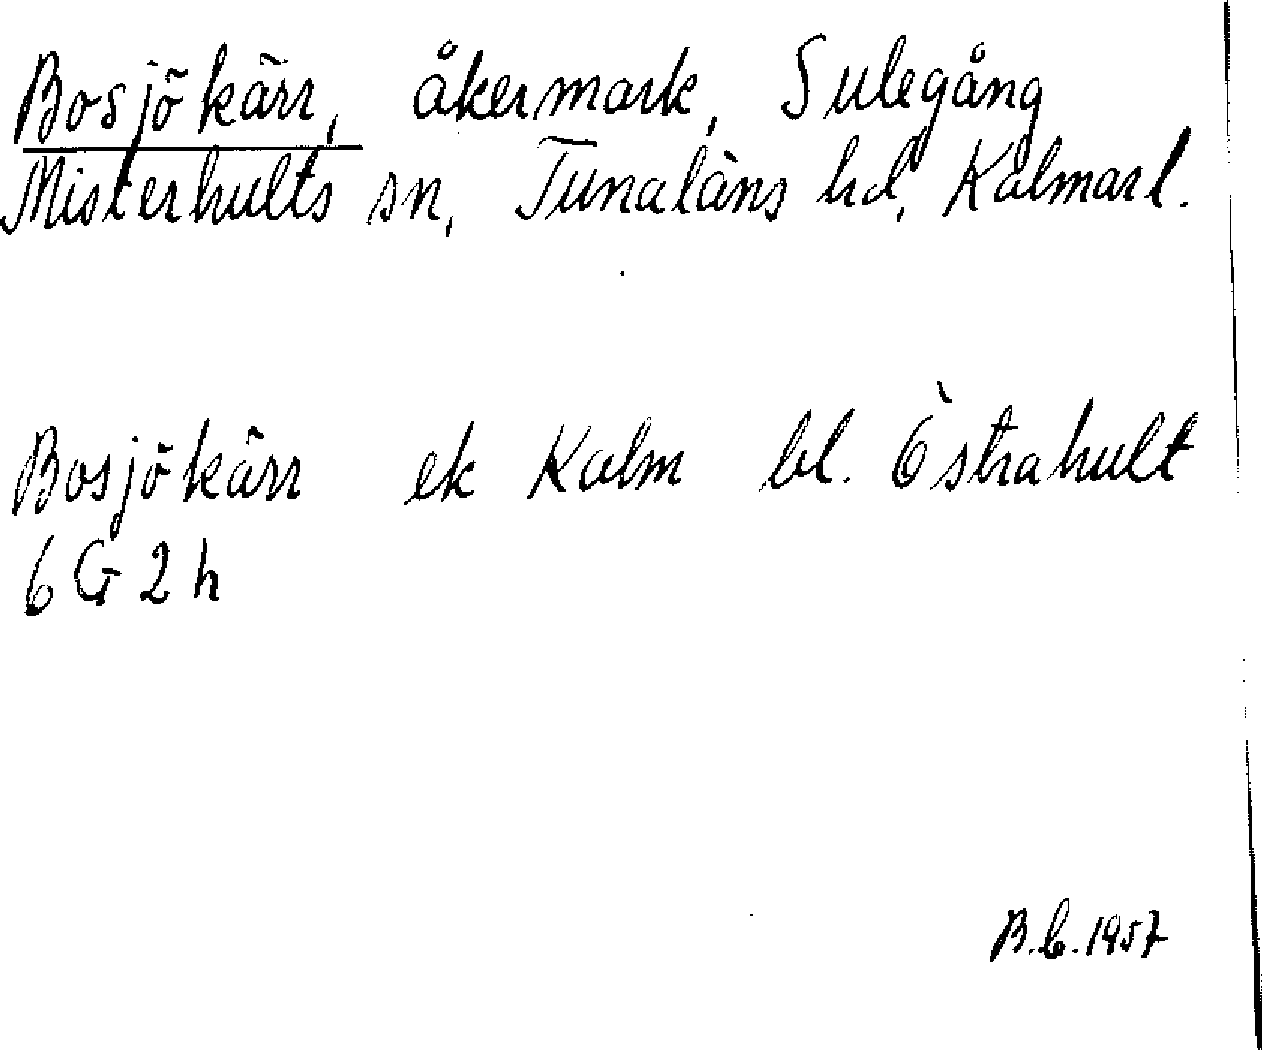 Bosjökärr, åkermark, Sulegång
Misterhults sn, Tunaläns hd, Kalmarl.
Bosjökärr ek Kalm bl. Östrahult
6 G 2 h
B.C. 1957